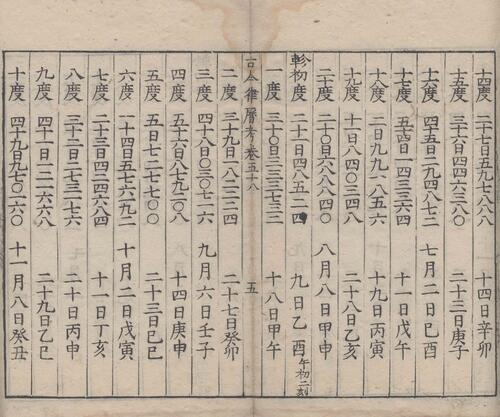 十四度 二十七日五九七八八八 十四日辛卯
十五度 三十六日四四六三八〇 二十三日庚子
十六度 四十五日二九四八七二 七月二日己酉
十七度 五十四日一四三三六四 十一日戊午
十八度 二日九九一八五六 十九日丙寅
十九度 十一日八四〇三四八 二十八日乙亥
二十度 二十〇日六八八八四〇 八月八日甲申
軫初度 二十一日四八五二四 九日乙酉 午初二刻
一度 三十〇日三三三七三二 十八日甲午
古今律曆考卷五十八 五
二度 三十九日一八二二二四 二十七日癸卯
三度 四十八日〇三〇七一六 九月六日壬子
四度 五十六日八七九二〇八 十四日庚申
五度 五日七二七七〇〇 二十三日己巳
六度 一十四日五七六一九二 十月二日戊寅
七度 二十三日四二四六八四 十一日丁亥
八度 三十二日二七三一七六 二十日丙申
九度 四十一日一二一六六八 二十九日乙巳
十度 四十九日九七〇一六〇 十一月八日癸丑